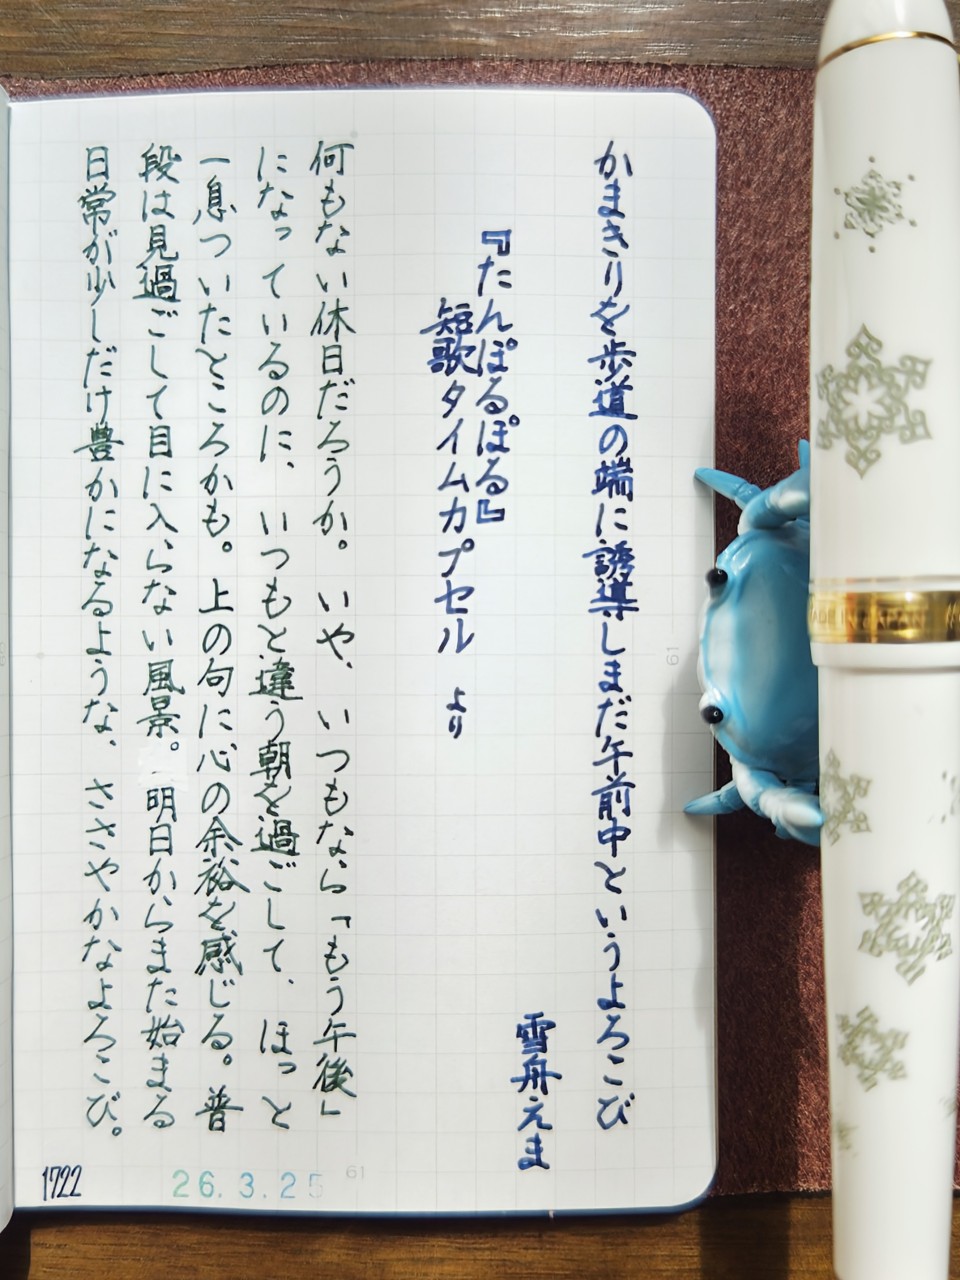 かまきりを歩道の端に誘導しまだ午前中というよろこび
雪舟えま
『たんぽるぽる』
短歌タイムカプセル より
何もない休日だろうか。いや、いつもなら「もう午後」
になっているのに、いつもと違う朝を過ごして、ほっと
一息ついたところかも。上の句に心の余裕を感じる。普
段は見過ごして目に入らない風景。明日からまた始まる
日常が少しだけ豊かになるような、ささやかなよろこび。
1722
26.3.25
61
61
MADE IN JAPAN